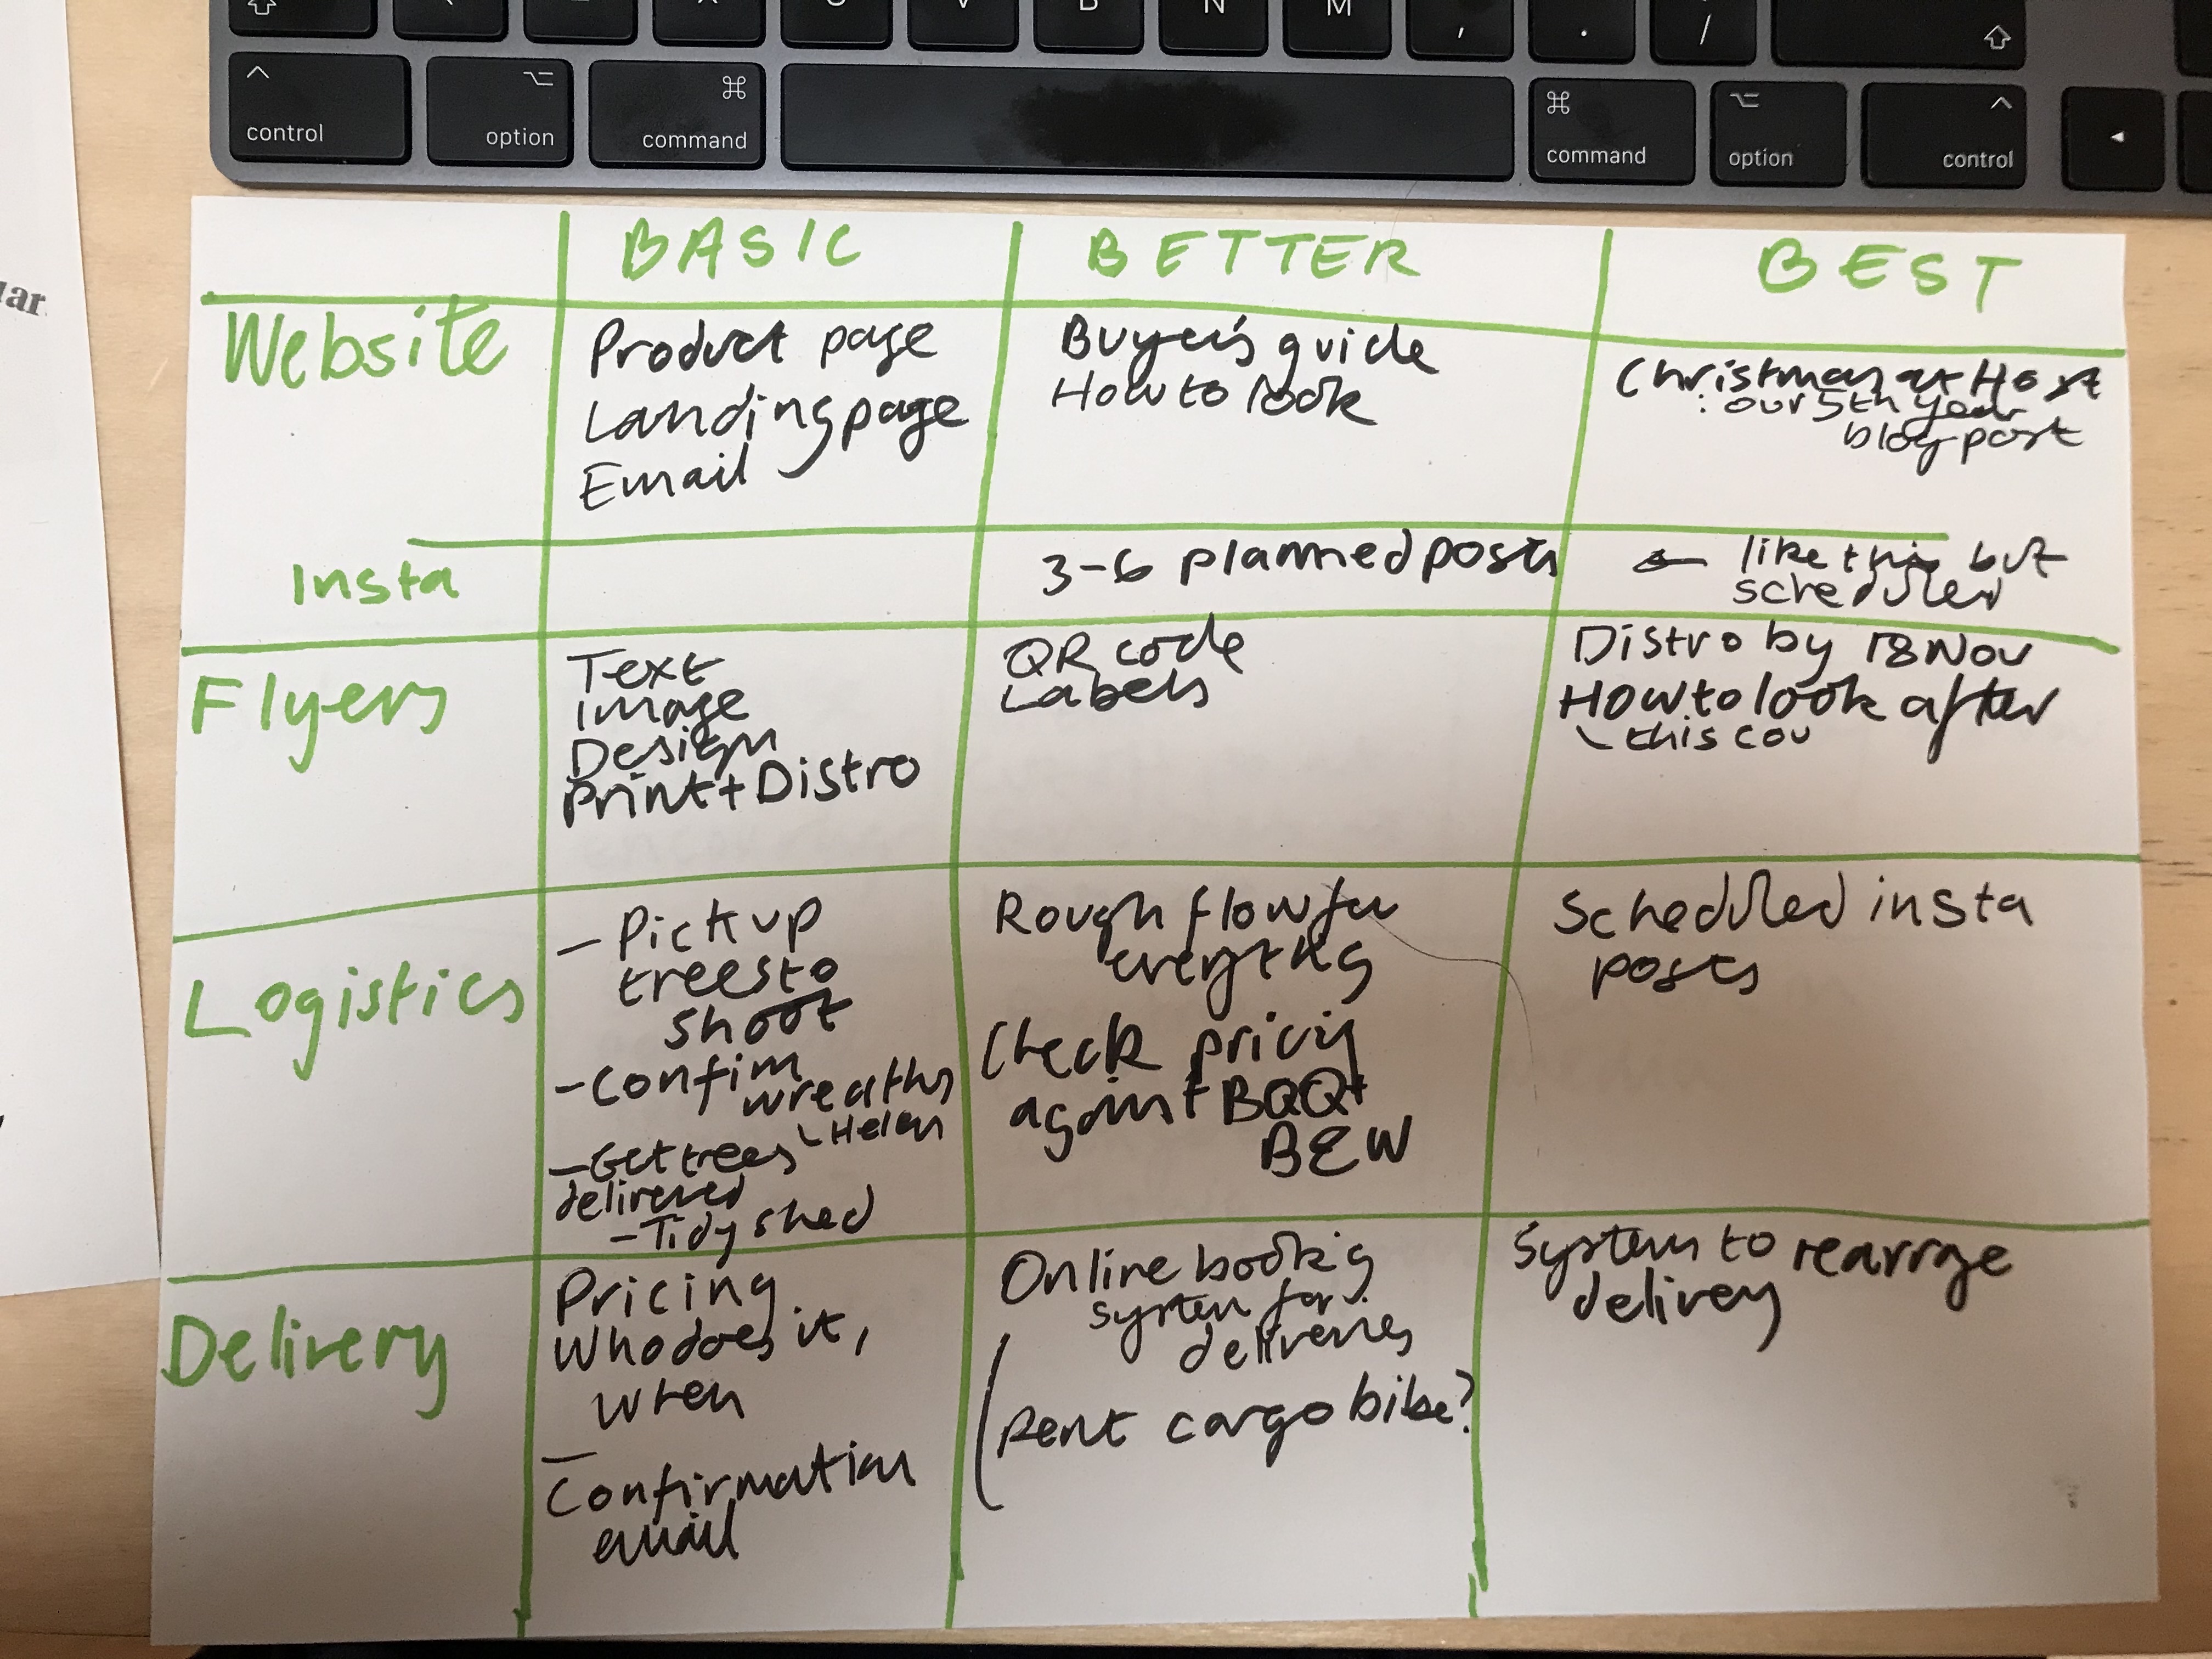 Z X C V B N M , . /
control option command command option control
uar
BASIC BETTER BEST
Website
Product page
Landing page
Email
Buyer's guide
How to look
Christmas at Host
: our 5th year
blog post
Insta
3-6 planned posts
← like this but
scheduled
Flyers
Text
image
Design
Print + Distro
QR code
Labels
Distro by 18 Nov
How to look after
this
Logistics
- Pick up
trees to
shoot
- Confim
wreaths
Helen
- Get trees
delivered
- Tidy shed
Rough flow for
everythig
Check pricig
against BQQt
BEW
Scheduled insta
posts
Delivery
Pricing
Who does it,
when
Confirmation
email
Online book'g
system for
deliveries
Rent cargo bike?
System to rearrge
delivery